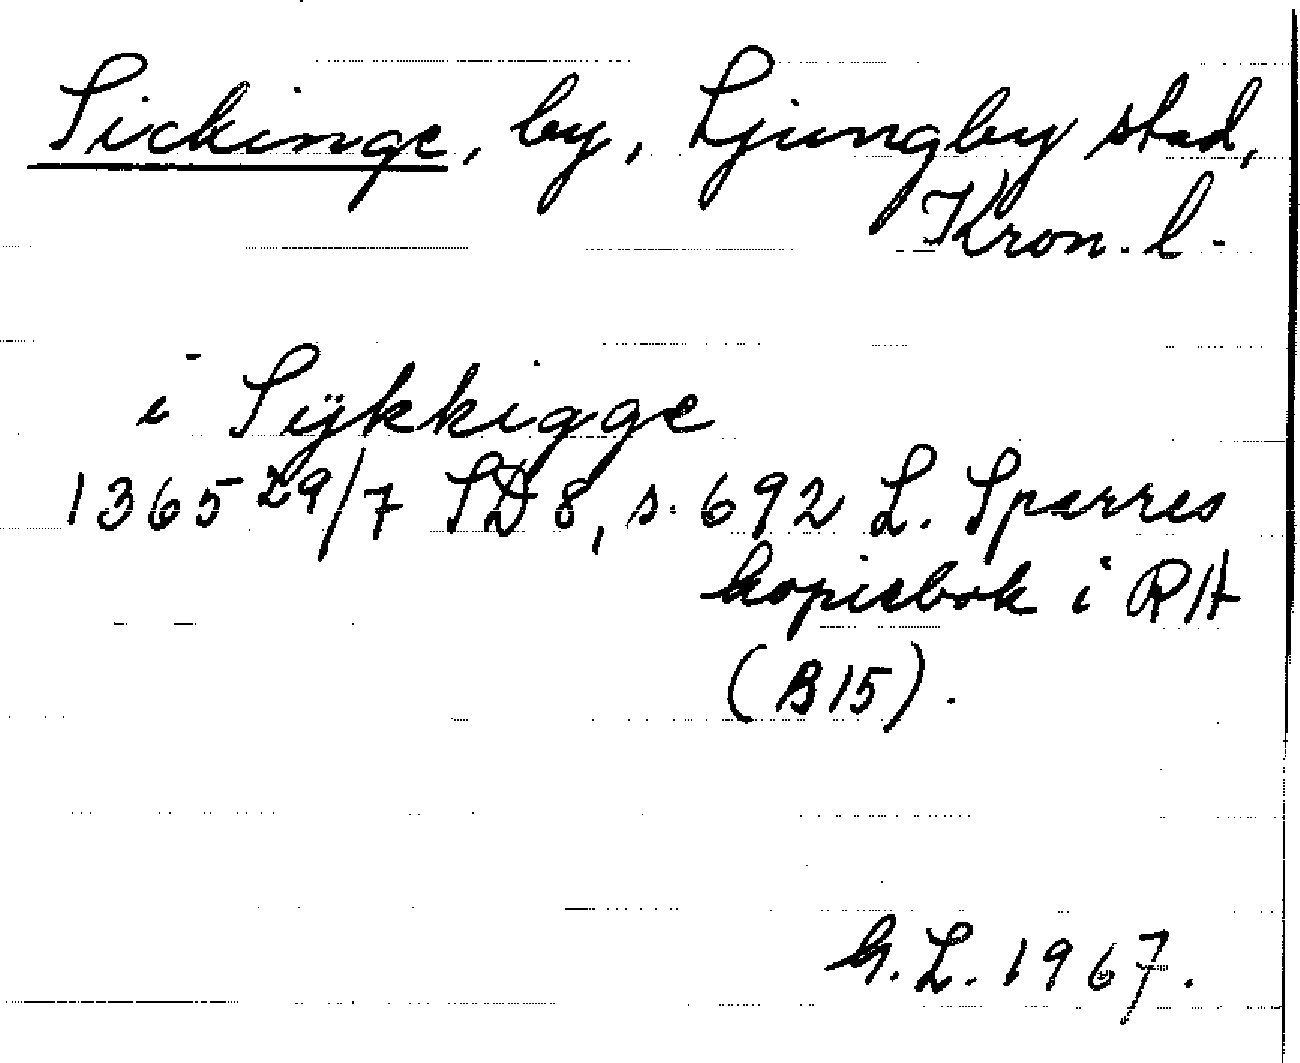 Sickinge, by, Ljungby stad,
Kron. l.
i Sÿkkigge
1365 29/7 SD 8, s. 692 L. Sparres
kopiebok i RA
(B15).
G.L. 1967.